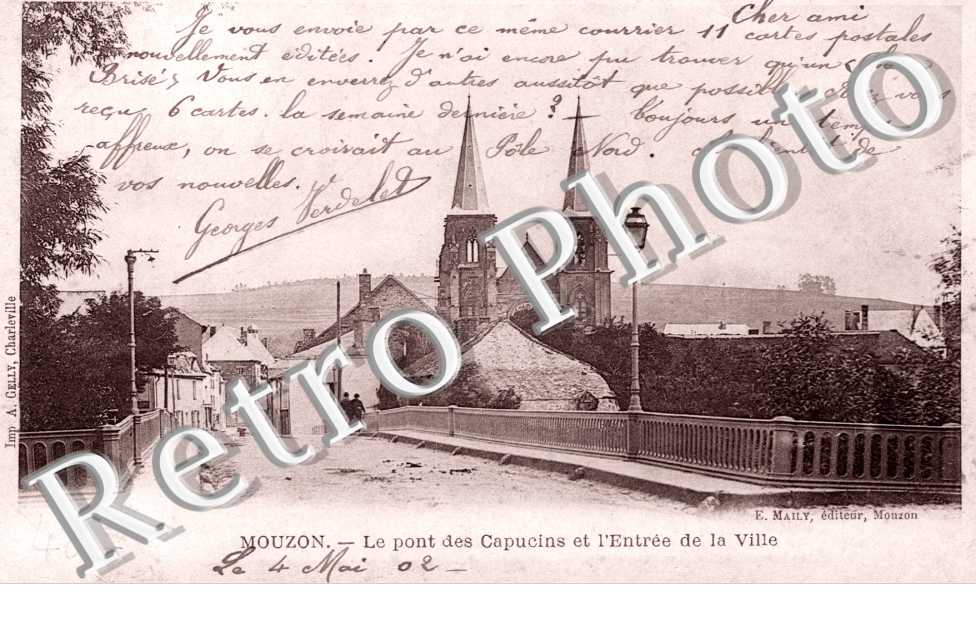 Cher ami
Je vous envoie par ce même courrier 11 cartes postales
nouvellement éditées. Je n'ai encore pu trouver qu'un
Brisé, Vous en enverrez d'autres aussitôt que possible.
reçu 6 cartes. la semaine dernière ? toujours un temps
affreux, on se croirait au Pôle Nord. de
vos nouvelles.
Georges Verdelet
Imp A. GELLY, Charleville
E. MAILY, éditeur, Mouzon
MOUZON. — Le pont des Capucins et l'Entrée de la Ville
Le 4 Mai 02 —
Retro Photo